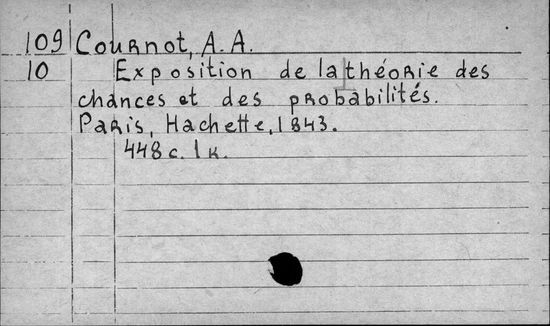 109 Cournot, A. A.
10 Exposition de la théorie des
chances et des probabilités.
Paris, Hachette, 1843.
448 c. 1 к.